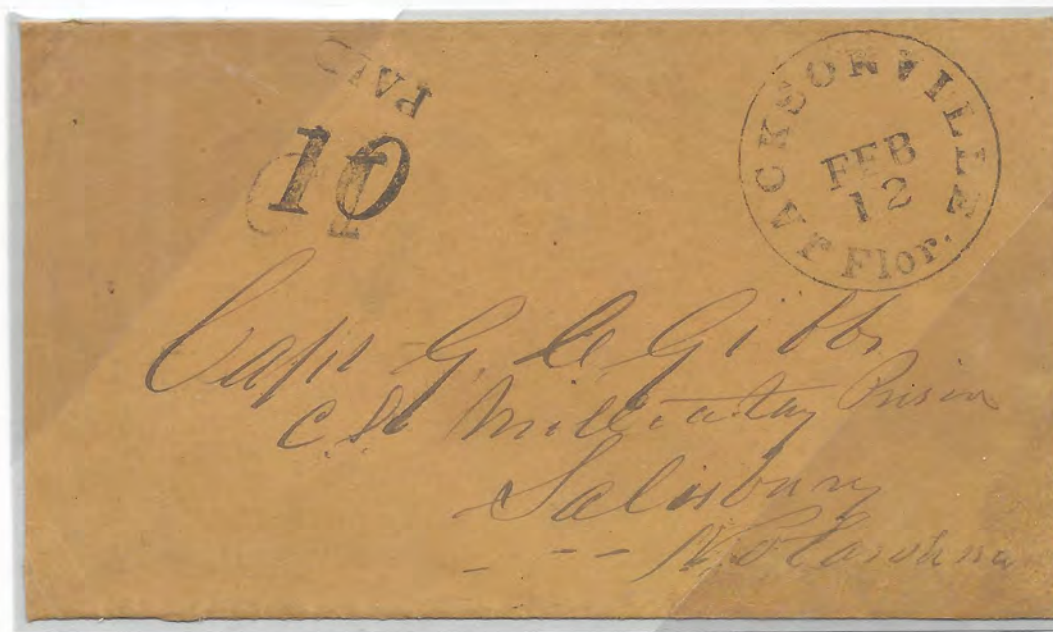 PAID
10
JACKSONVILLE Flor.
FEB
12
Capt G. C. Gibbs
C.S. Military Prison
Salisbury
No Carolina